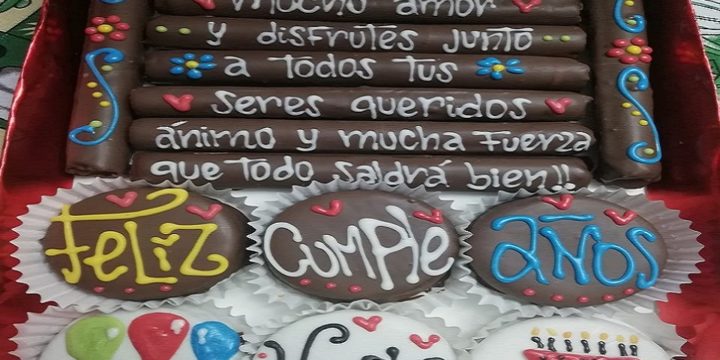 mucho amor
y disfrutes junto
a todos tus
seres queridos
ánimo y mucha fuerza
que todo saldrá bien!!
Feliz
cumple
años